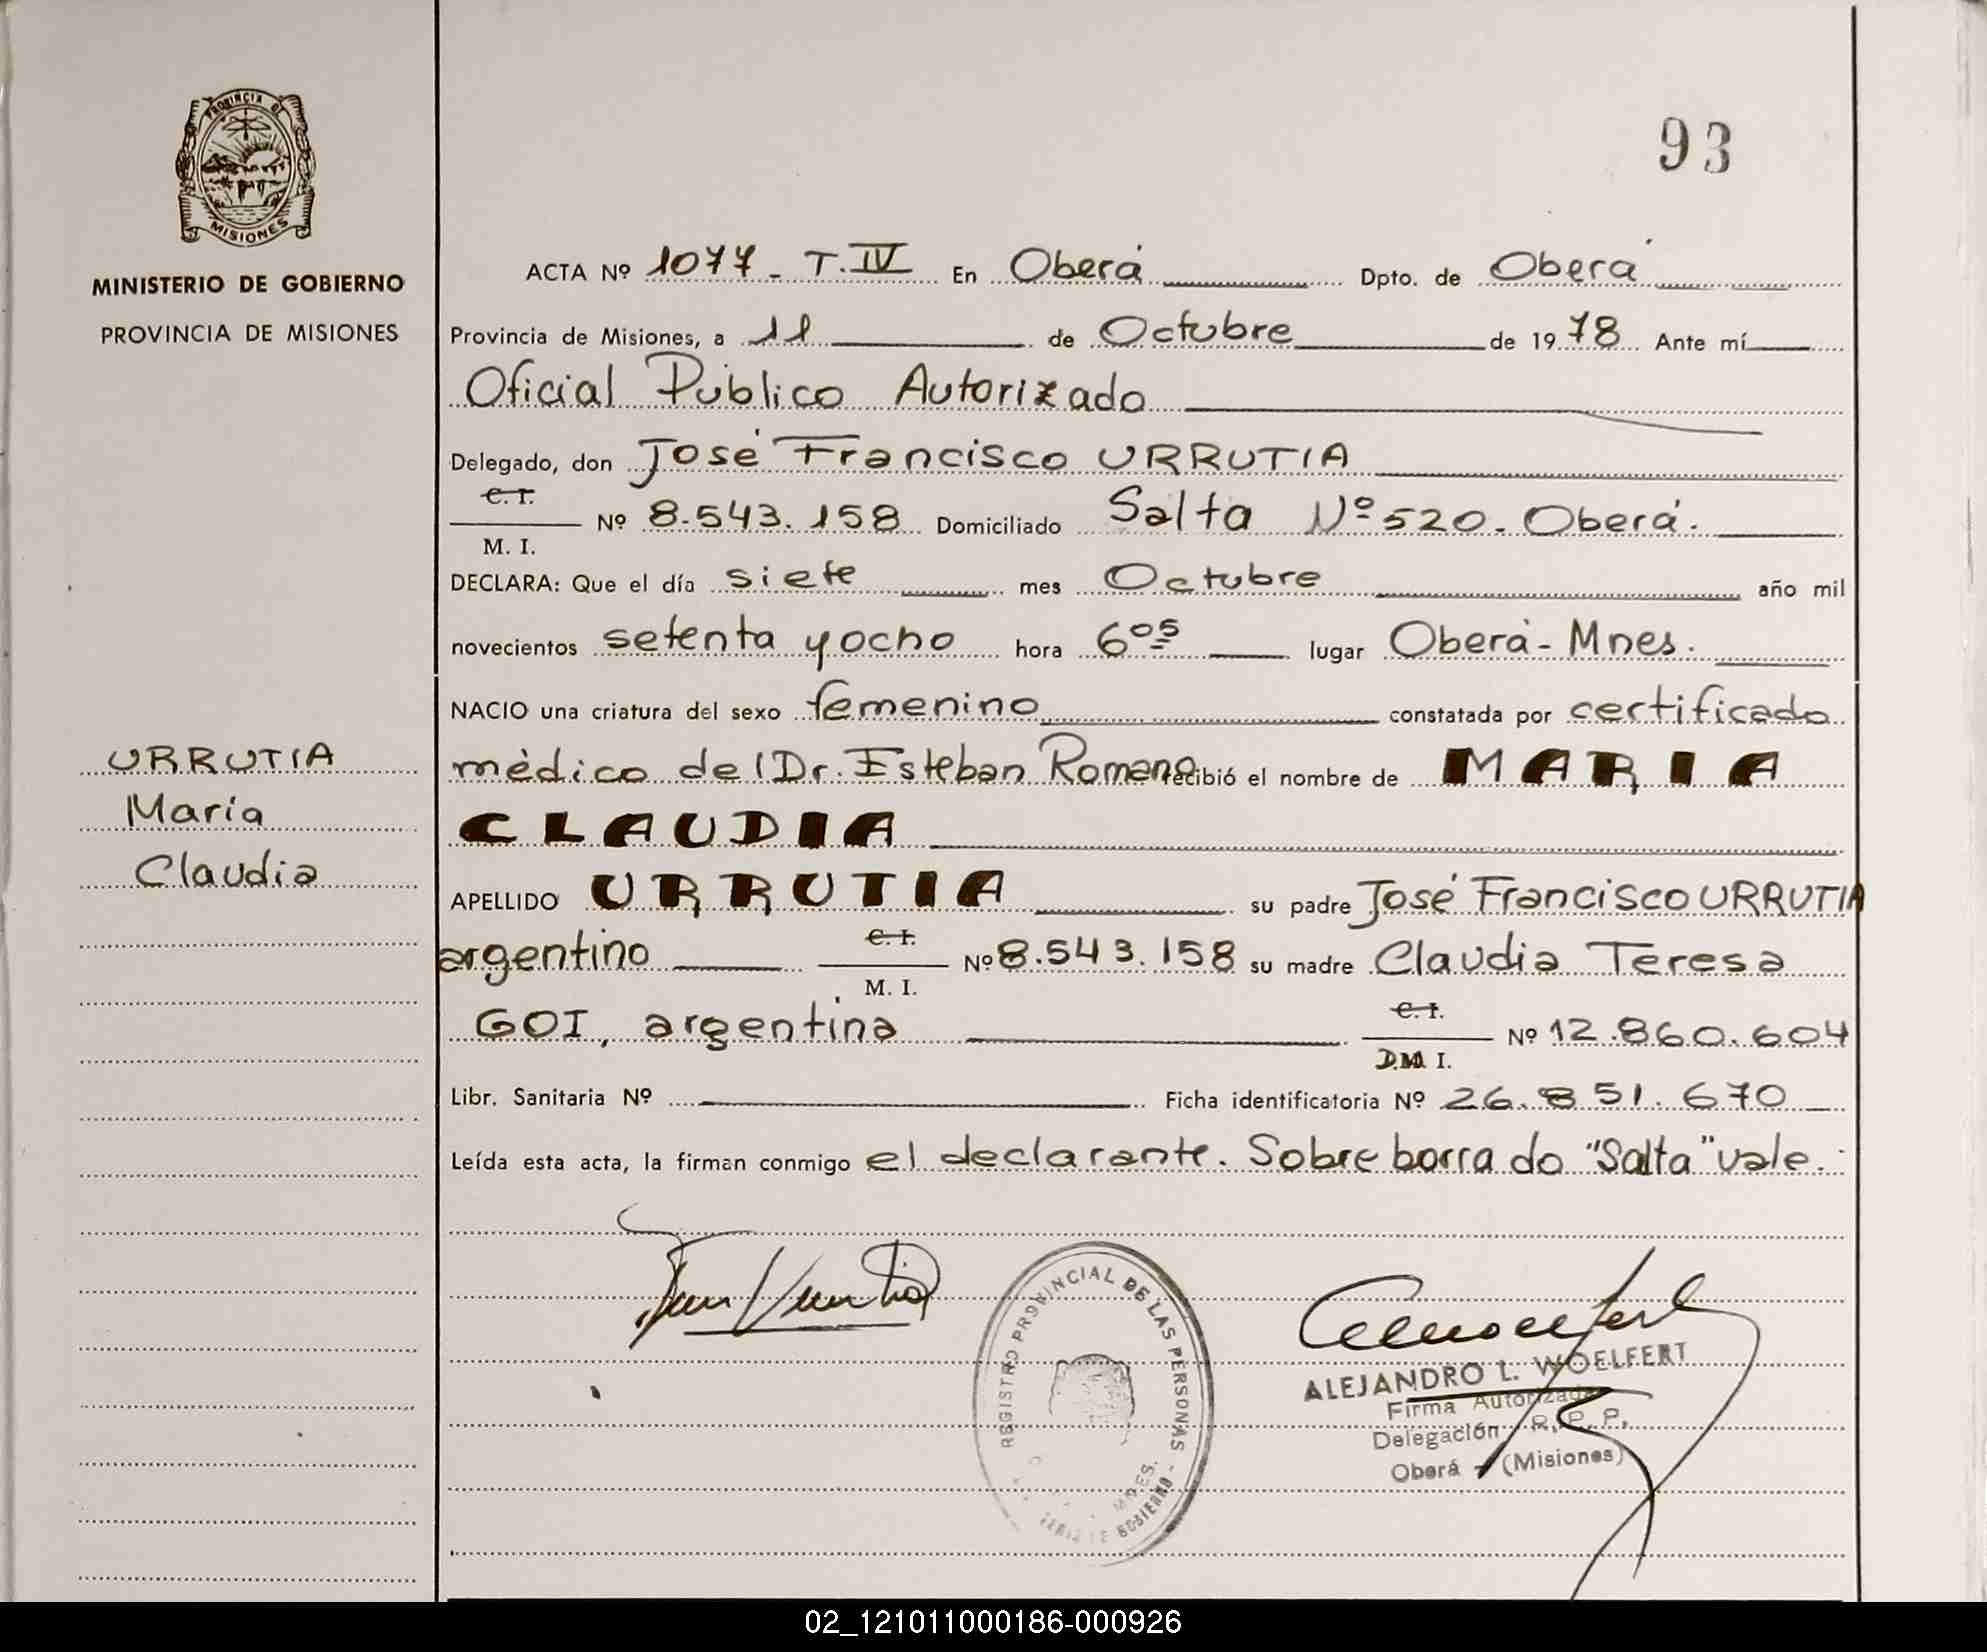 PROVINCIA DE
MISIONES
MINISTERIO DE GOBIERNO
PROVINCIA DE MISIONES
93
ACTA Nº 1077 - T. IV En Oberá Dpto. de Oberá
Provincia de Misiones, a 11 de Octubre de 1978 Ante mí
Oficial Público Autorizado
Delegado, don José Francisco URRUTIA
C. I.
M. I.
Nº 8.543.158 Domiciliado Salta Nº 520. Oberá.
DECLARA: Que el día siete mes Octubre año mil
novecientos setenta y ocho hora 6 05 lugar Oberá - Mnes.
NACIO una criatura del sexo femenino constatada por certificado
URRUTIA
María
Claudia
mèdico del Dr. Esteban Romano recibió el nombre de MARIA
CLAUDIA
APELLIDO URRUTIA su padre José Francisco URRUTIA
argentino C. I. M. I. Nº 8.543.158 su madre Claudia Teresa
GOI, argentina C. I. D.M. I. Nº 12.860.604
Libr. Sanitaria Nº Ficha identificatoria Nº 26.851.670
Leída esta acta, la firman conmigo el declarante. Sobre borrado "Salta" vale.
REGISTRO PROVINCIAL DE LAS PERSONAS -
MNES.
GOBIERNO
ALEJANDRO L. WOELFERT
Firma Autorizada
Delegación R. P. P.
Oberá - (Misiones)
02_121011000186-000926